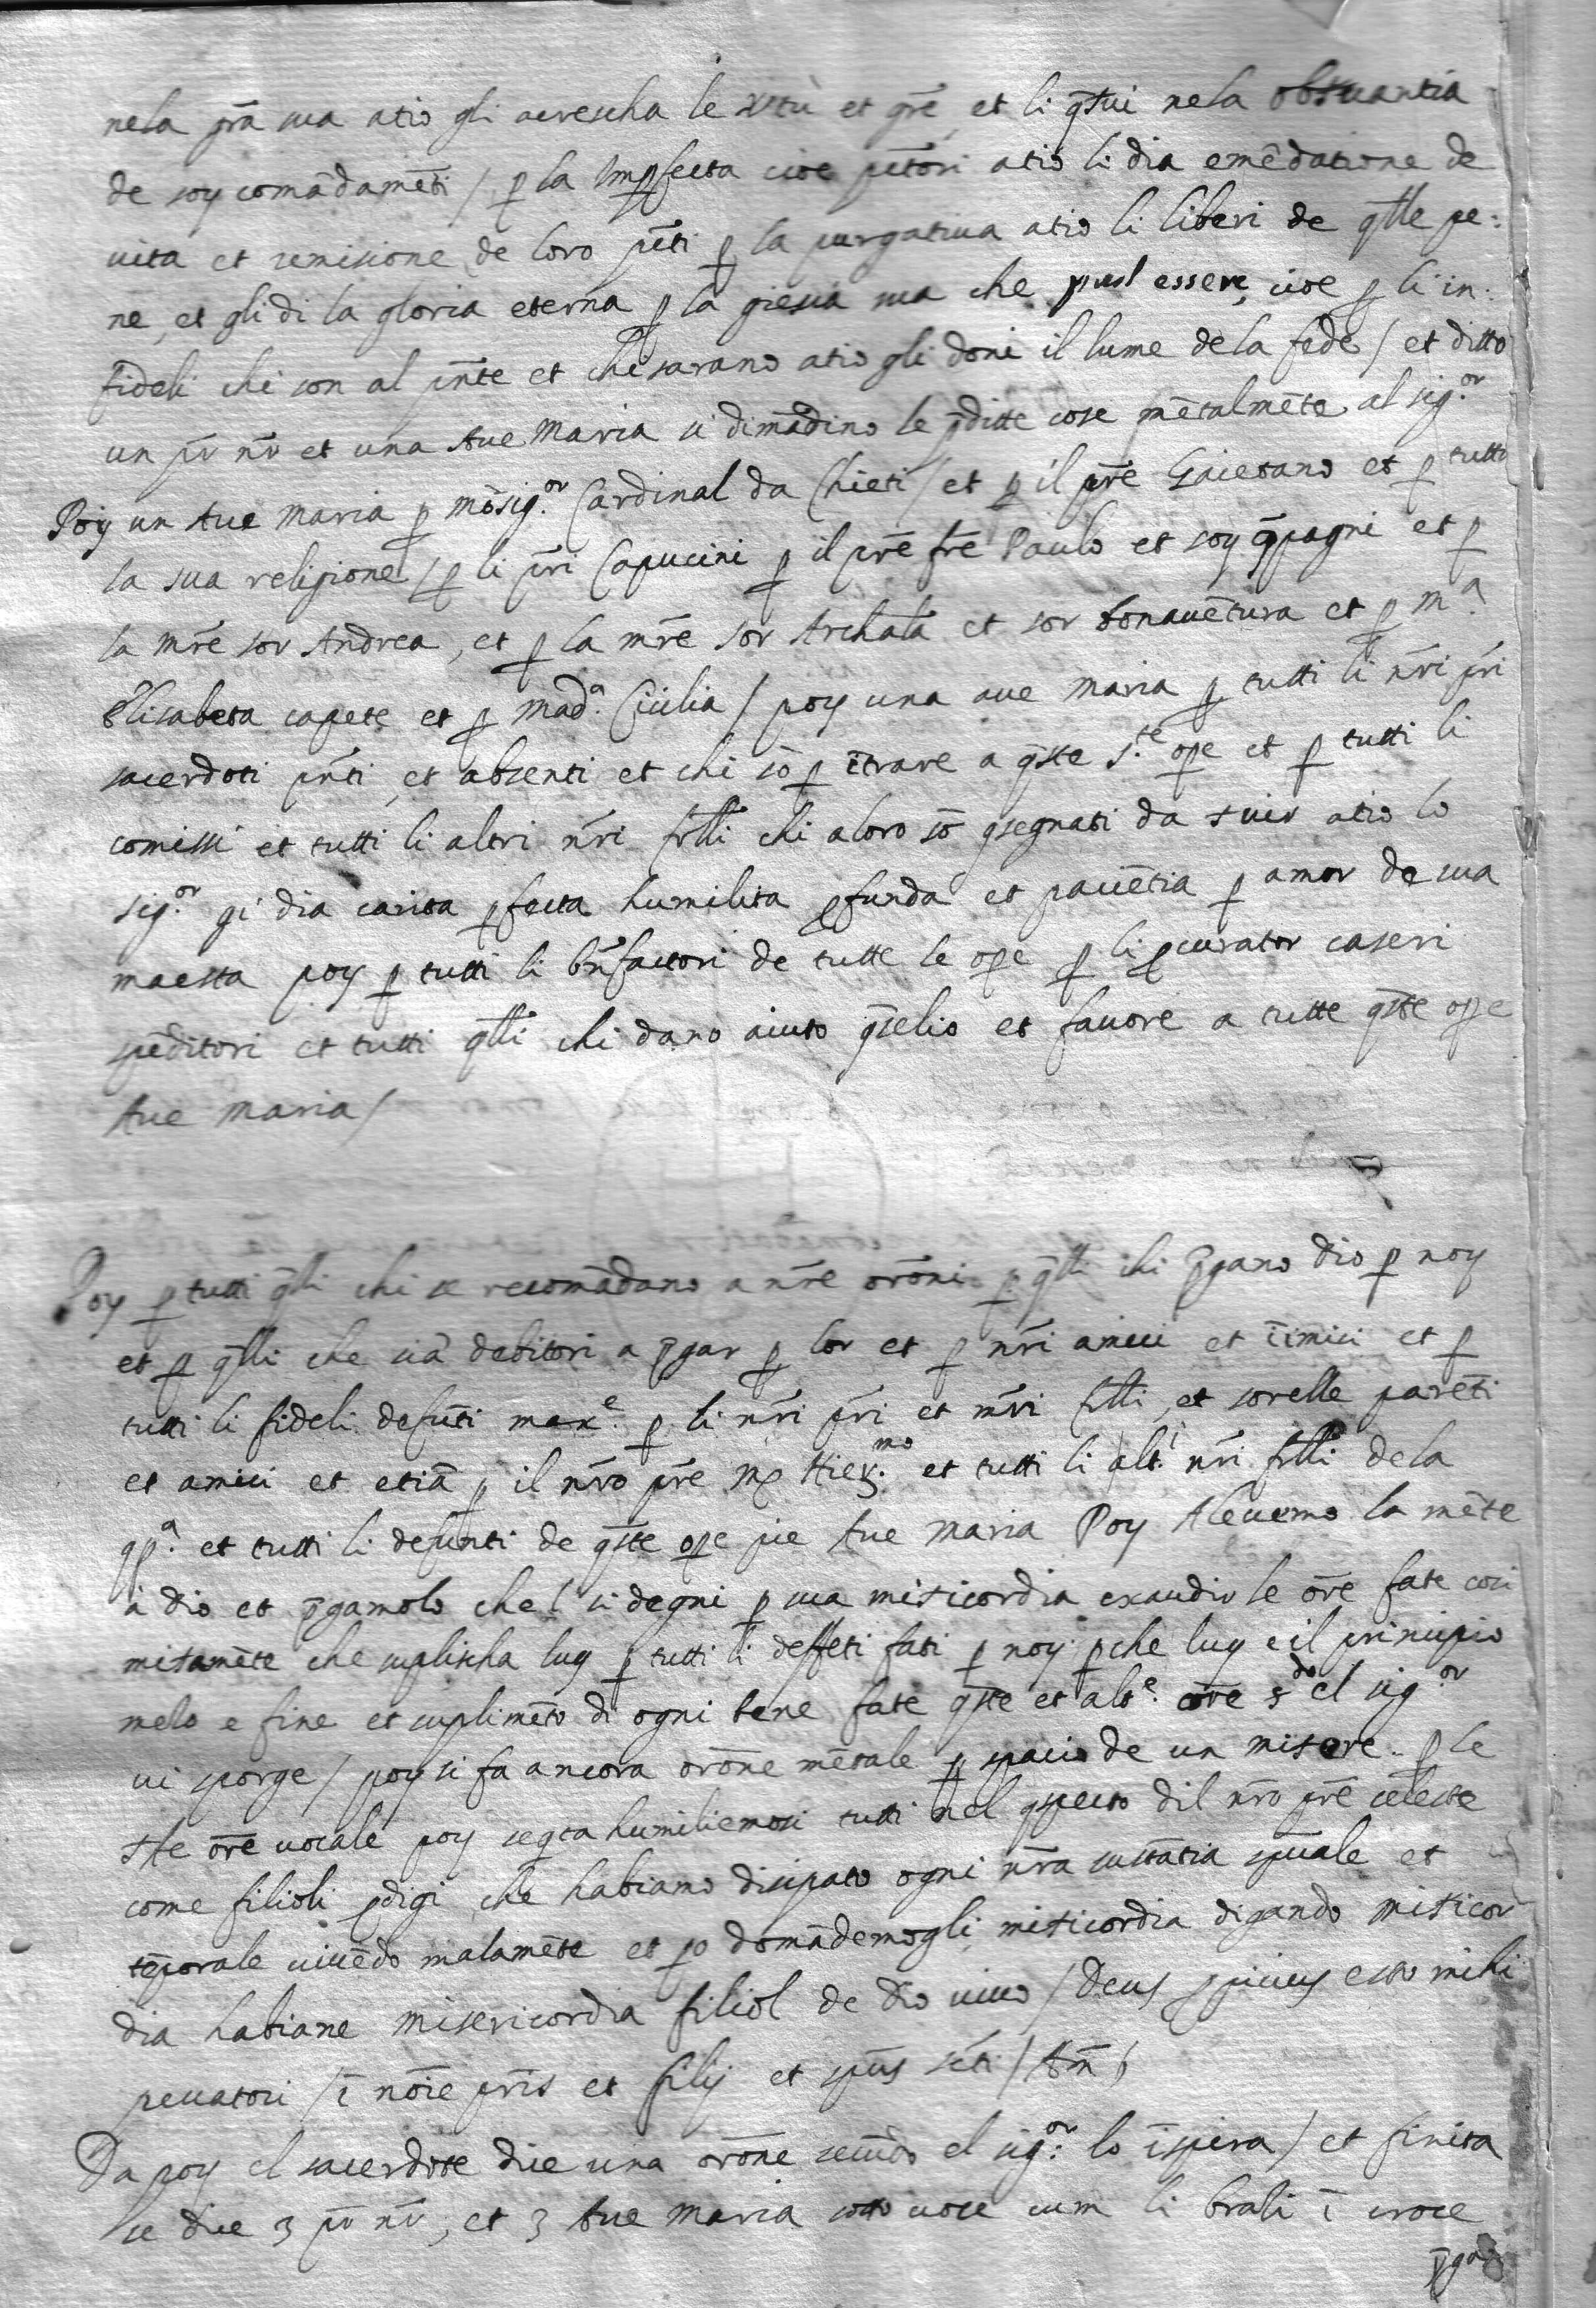 nela grã sua atio gli acrescha le virtù et grẽ, et li q̃stui nela obseruantia
de soy comãdamẽti / p la Impfecta cioe pctori atio li dia emẽdatione de
uita et remisione de loro pcti p la purgatiua atio li liberi de q̃lle pe:
ne, et gli di la gloria eterna p la giesia sua che puol essere, cioe p li in:
fideli chi son al pñte et chi sarano atio gli doni il lume dela fede / et ditto
un pr̃ nr̃ et una Aue Maria si dimãdino le p̃ditte cose mẽtalmẽte al sig:or
Poy un Aue Maria p mõsig:or Cardinal da Chieti / et p il pr̃e Gaietano et p tutto
la sua religione / p li pr̃i Capucini p il pr̃e fr̃e Paulo et soy cp̃agni et p
la mr̃e sor Andrea, et p la mr̃e sor Archãla et sor bonauẽtura et p m:a
Elisabeta capete et p mad:a Cicilia / poy una aue maria p tutti li nr̃i pr̃i
sacerdoti pñti et absenti et chi sõ p ĩtrare a q̃ste s:te ope et p tutti li
comissi et tutti li altri nr̃i frl̃li chi a loro sõ cõsegnati da seruir atio lo
sig:or gi dia carita pfecta humilita pfunda et paciẽtia p amor de sua
maesta poy p tutti li bñfactori de tutte le ope p li pcurator caseri
spẽditori et tutti q̃lli chi dano aiuto cõselio et fauore a tutte q̃ste ope
Aue Maria /
Poy p tutti q̃lli chi se recomãdano a nr̃e orõni p q̃lli chi p̃gano dio p noy
et p q̃lli che siã debitori a p̃gar p lor et p nr̃i amici et ĩimici et p
tutti li fideli defũti max:e p li nr̃i pr̃i et mr̃i frl̃li, et sorelle parẽti
et amici et etiã p il nr̃o pr̃e m Hier:mo et tutti li alt:i nr̃i frl̃li dela
cp:a et tutti li defunti de q̃ste ope pie Aue Maria Poy Aleuemo la mẽte
a dio et p̃gamolo che l si degni p sua misericordia exaudir le or̃e fate cosi
mitamẽte che suplischa luy p tutti li deffeti fati p noy pche luy e il principio
melo e fine et suplimẽto di ogni bene fate q̃ste et alt:e or̃e s:do el sig:or
ui sporge / poy si fa ancora orõne mẽtale p spacio de un misere. p le
ste or̃e uocale poy seq̃ta humiliemosi tutti nel cõspecto dil nr̃o pr̃e celeste
come filioli pdigi, che habiamo disipato ogni nr̃a sustãtia spũale et
tẽporale uiuẽdo malamẽte et po domãdemogli misericordia digando misericor
dia habiane misericordia filiol de dio uiuo / Deus ppicius esto mihi
peccatori / ĩ nõie pr̃is et filij et spũs scti / Am̃
Da poy el sacerdote dice una orõne secũdo el sig:or lo ĩspira / et finita
se dice 3 pr̃ nr̃, et 3 Aue maria soto uoce cum li brali ĩ croce
p̃gã